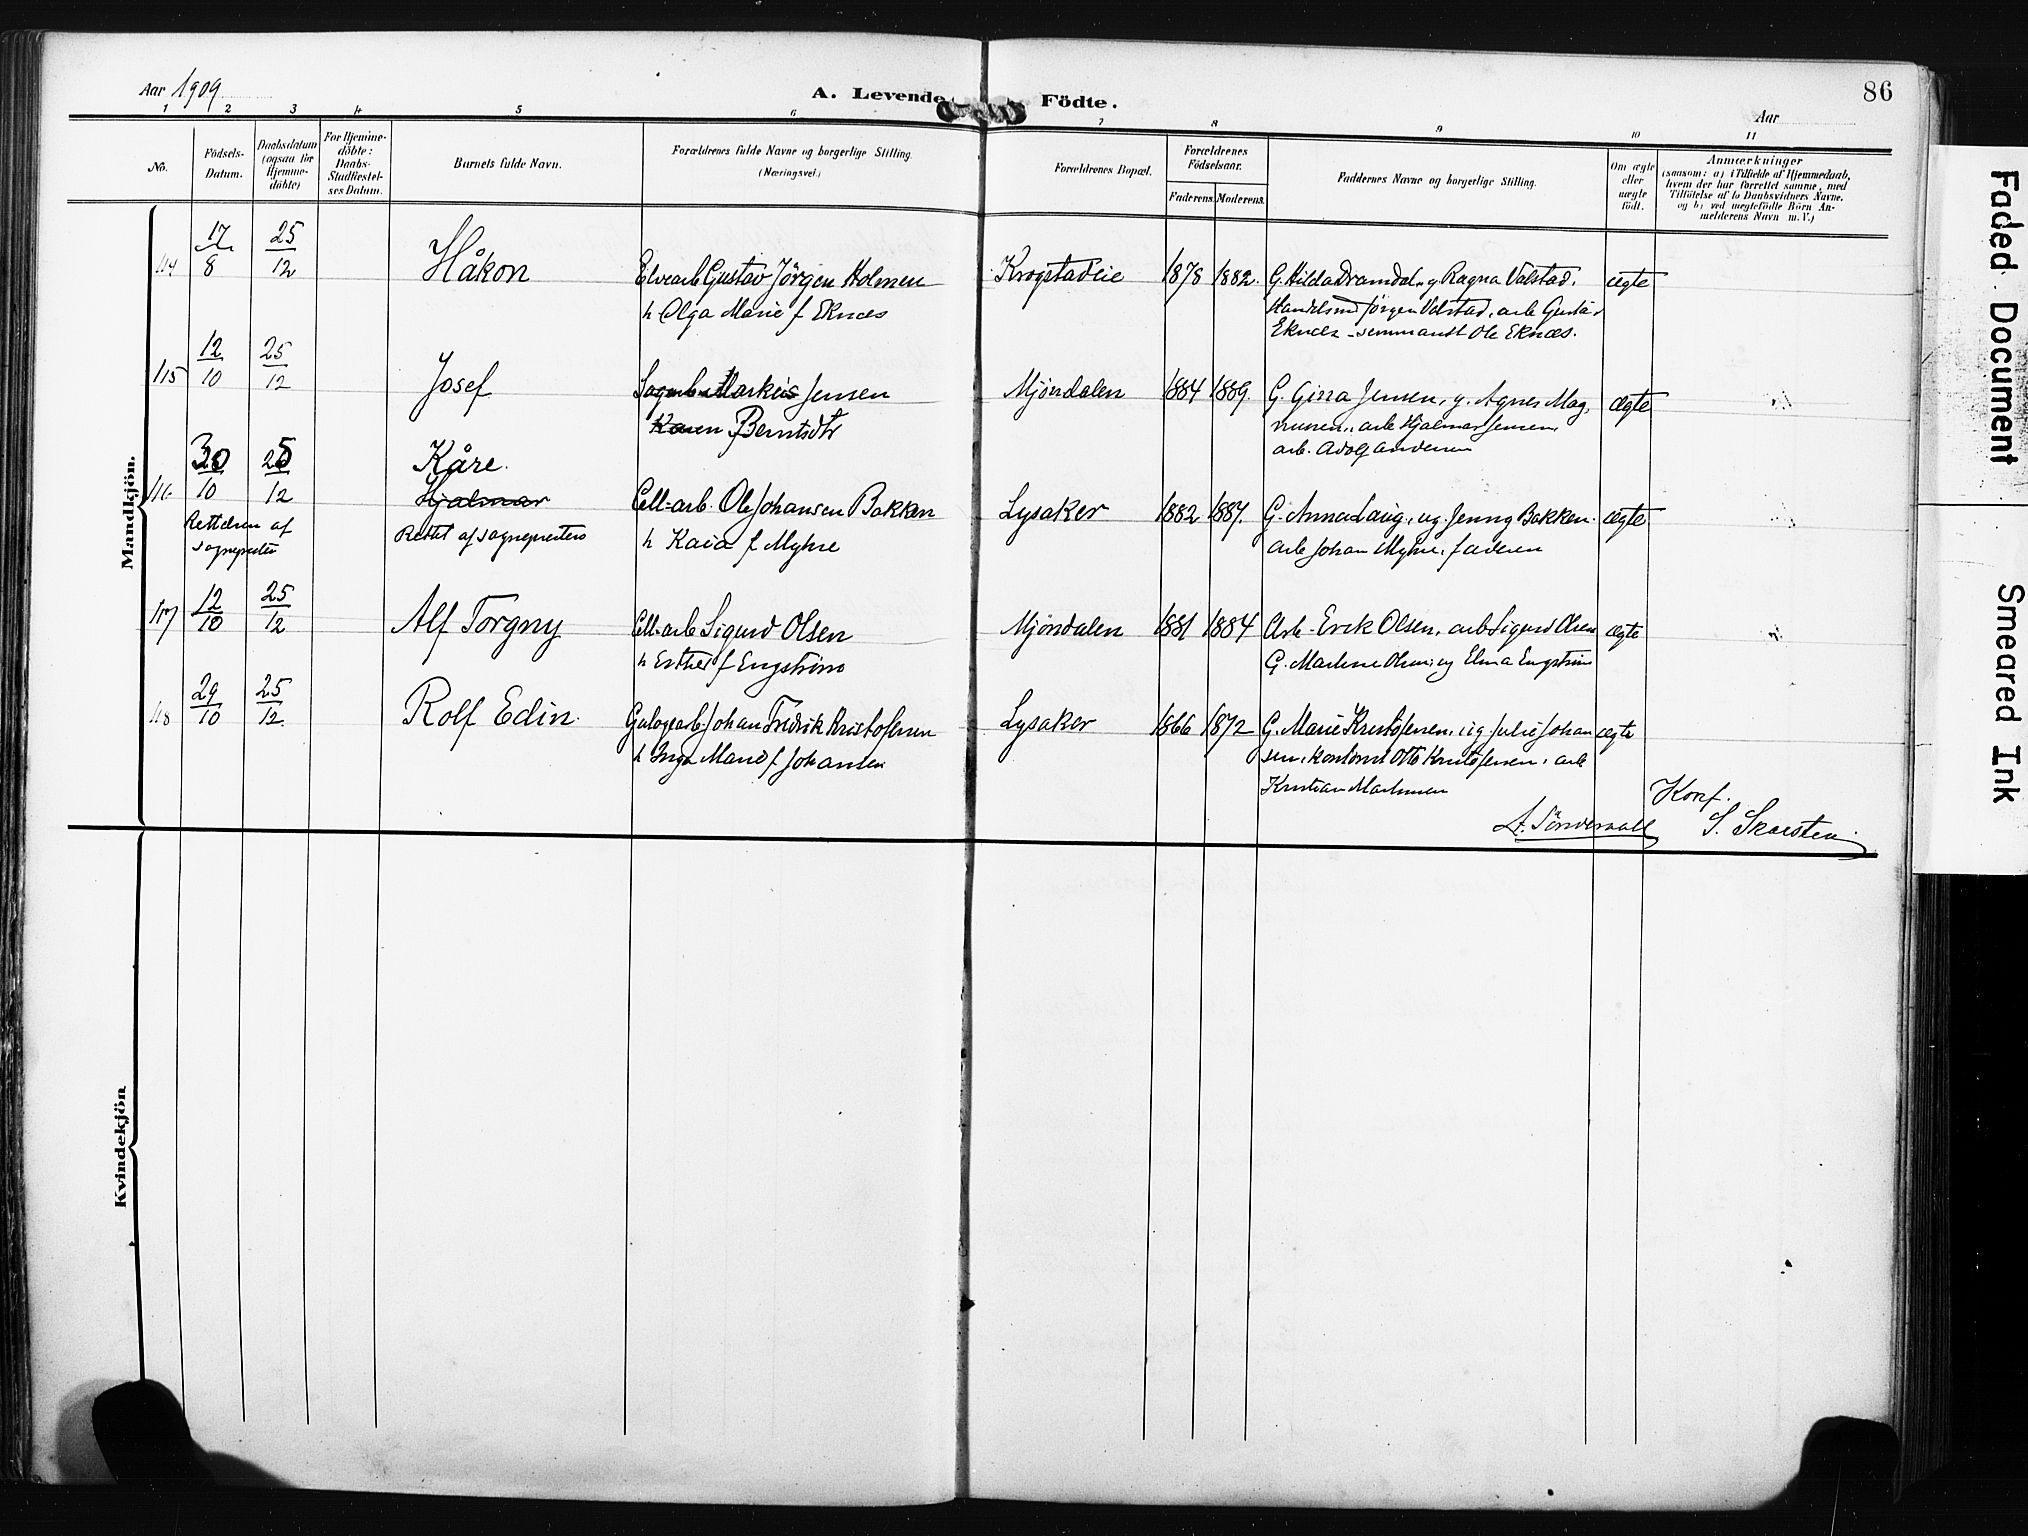 Aar 1909
A. Levende Födte.
86
Aar
1 2 3 4 5 6 7 8 9 10 11
No.
Födsels-Datum.
Daabsdatum (ogsaa for Hjemmedöbte)
For Hjemmedöbte: Daabs-Stadfæstelses Datum.
Barnets fulde Navn.
Forældrenes fulde Navne og borgerlige Stilling. (Næringsvei.)
Forældrenes Bopæl.
Forældrenes Födselsaar.
Faderens. Moderens.
Faddernes Navne og borgerlige Stilling.
Om ægte eller uægte födt.
Anmærkninger
(saasom: a) i Tilfælde af Hjemmedaab,
hvem der har forrettet samme, med
Tilföielse af to Daabsvidners Navne.
og b) ved uægtefödte Börn An-
melderens Navn m. V.)
Mandkjön.
114 17/8 25/12 Håkon Elvearb Gustav Jörgen Holmen Krogstadeie 1878 1882. G. Hilda Dramdal, g. Ragna Valstad, ægte
h Olga Marie f Eknæs Handelsmd Jörgen Valstad, arb Gustav
Eknæs - Ole Eknæs.
115 12/10 25/12 Josef Sagarb Markus Jensen Mjöndalen 1884 1889. G. Gina Jensen, g. Agnes Mag- ægte
Karen f Berntsdtr nussen, arb Hjalmar Jensen,
arb. Adolf Andersen
116 30/10 25/12 Kåre.
Hjalmar Cell-arb. Ole Johansen Bakken Lysaker 1882 1887. G. Anna Laug, ug. Jenny Bakken. ægte
Rettelsen af sognepresten Rettet af sognepresten h Kaia f Myhre arb Johan Myhre, faderen
117 12/10 25/12 Alf Torgny Cell-arb Sigurd Olsen Mjöndalen 1881 1884 Arb. Erik Olsen, arb Sigurd Olsen ægte
h Esther f Engström G. Marlene Olsen, ug Elma Engström
118 29/10 25/12 Rolf Edin. Johan Fredrik Kristofersen Lysaker 1866 1872 G. Marie Kristofersen, ug Julie Johan ægte
h Inga Marie f Johansen sen, kontorist Otto Kristofersen, arb
Kristian
Konf.
S. Skarsten
Kvindekjön
Faded Document
Smeared Ink